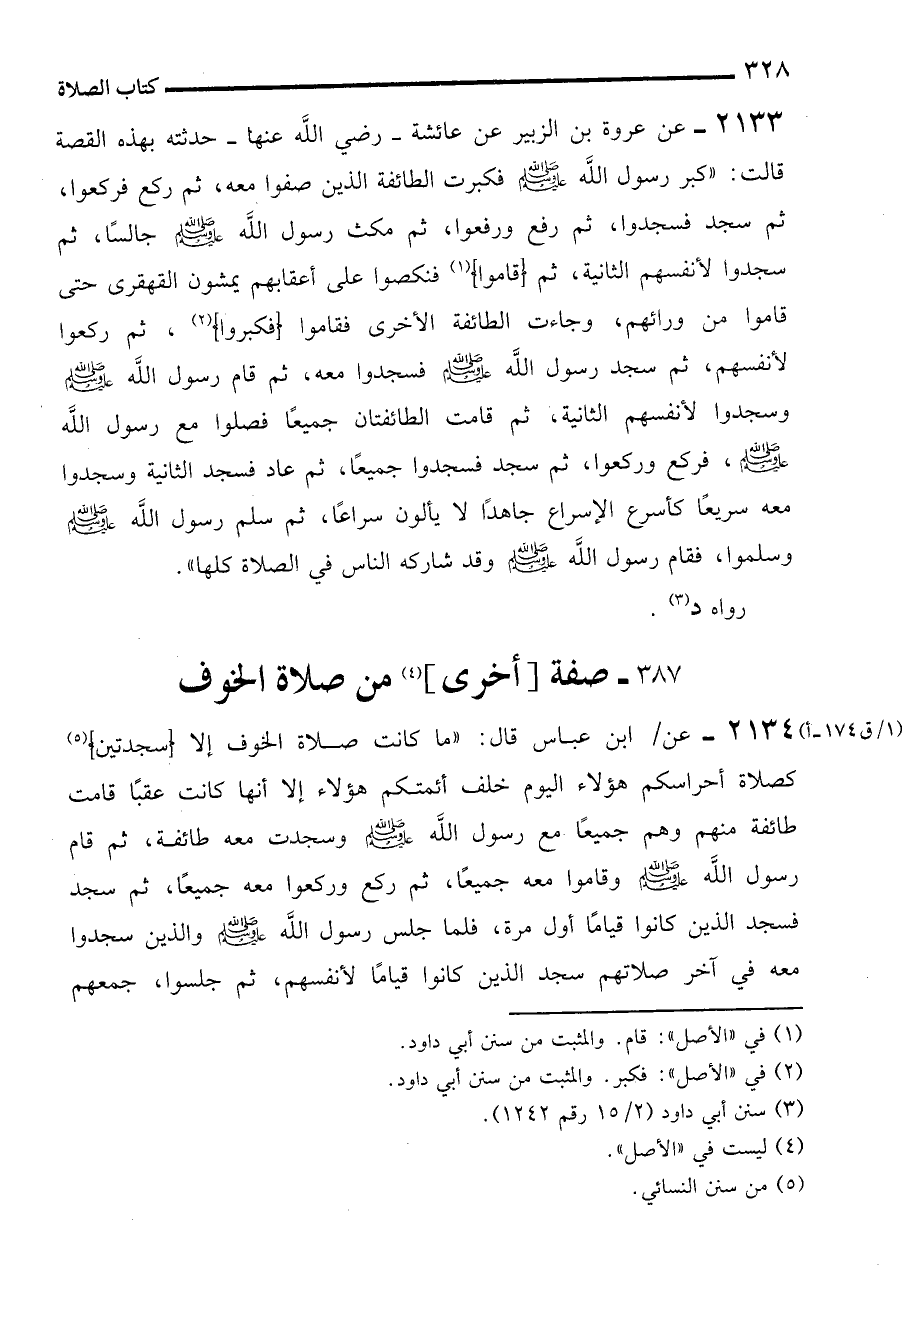 ٣٢٨ كتاب الصلاة
٢١٣٣ ـ عن عروة بن الزبير عن عائشة ـ رضي اللَّه عنها ـ حدثته بهذه القصة
قالت: «كبر رسول اللَّه ﷺ فكبرت الطائفة الذين صفوا معه، ثم ركع فركعوا،
ثم سجد فسجدوا، ثم رفع ورفعوا، ثم مكث رسول اللَّه ﷺ جالسًا، ثم
سجدوا لأنفسهم الثانية، ثم {قاموا}(١) فنكصوا على أعقابهم يمشون القهقرى حتى
قاموا من ورائهم، وجاءت الطائفة الأخرى فقاموا {فكبروا}(٢) ، ثم ركعوا
لأنفسهم، ثم سجد رسول اللَّه ﷺ فسجدوا معه، ثم قام رسول اللَّه ﷺ
وسجدوا لأنفسهم الثانية، ثم قامت الطائفتان جميعًا فصلوا مع رسول اللَّه
ﷺ ، فركع وركعوا، ثم سجد فسجدوا جميعًا، ثم عاد فسجد الثانية وسجدوا
معه سريعًا كأسرع الإسراع جاهدًا لا يألون سراعًا، ثم سلم رسول اللَّه ﷺ
وسلموا، فقام رسول اللَّه ﷺ وقد شاركه الناس في الصلاة كلها».
رواه د(٣) .
٣٨٧ ـ صفة [أخرى](٤) من صلاة الخوف
(١/ق١٧٤-أ) ٢١٣٤ ـ عن/ ابن عباس قال: «ما كانت صلاة الخوف إلا {سجدتين}(٥)
كصلاة أحراسكم هؤلاء اليوم خلف أئمتكم هؤلاء إلا أنها كانت عقبًا قامت
طائفة منهم وهم جميعًا مع رسول اللَّه ﷺ وسجدت معه طائفة، ثم قام
رسول اللَّه ﷺ وقاموا معه جميعًا، ثم ركع وركعوا معه جميعًا، ثم سجد
فسجد الذين كانوا قيامًا أول مرة، فلما جلس رسول اللَّه ﷺ والذين سجدوا
معه في آخر صلاتهم سجد الذين كانوا قيامًا لأنفسهم، ثم جلسوا، جمعهم
(١) في «الأصل»: قام. والمثبت من سنن أبي داود.
(٢) في «الأصل»: فكبر. والمثبت من سنن أبي داود.
(٣) سنن أبي داود (٢/ ١٥ رقم ١٢٤٢).
(٤) ليست في «الأصل».
(٥) من سنن النسائي.